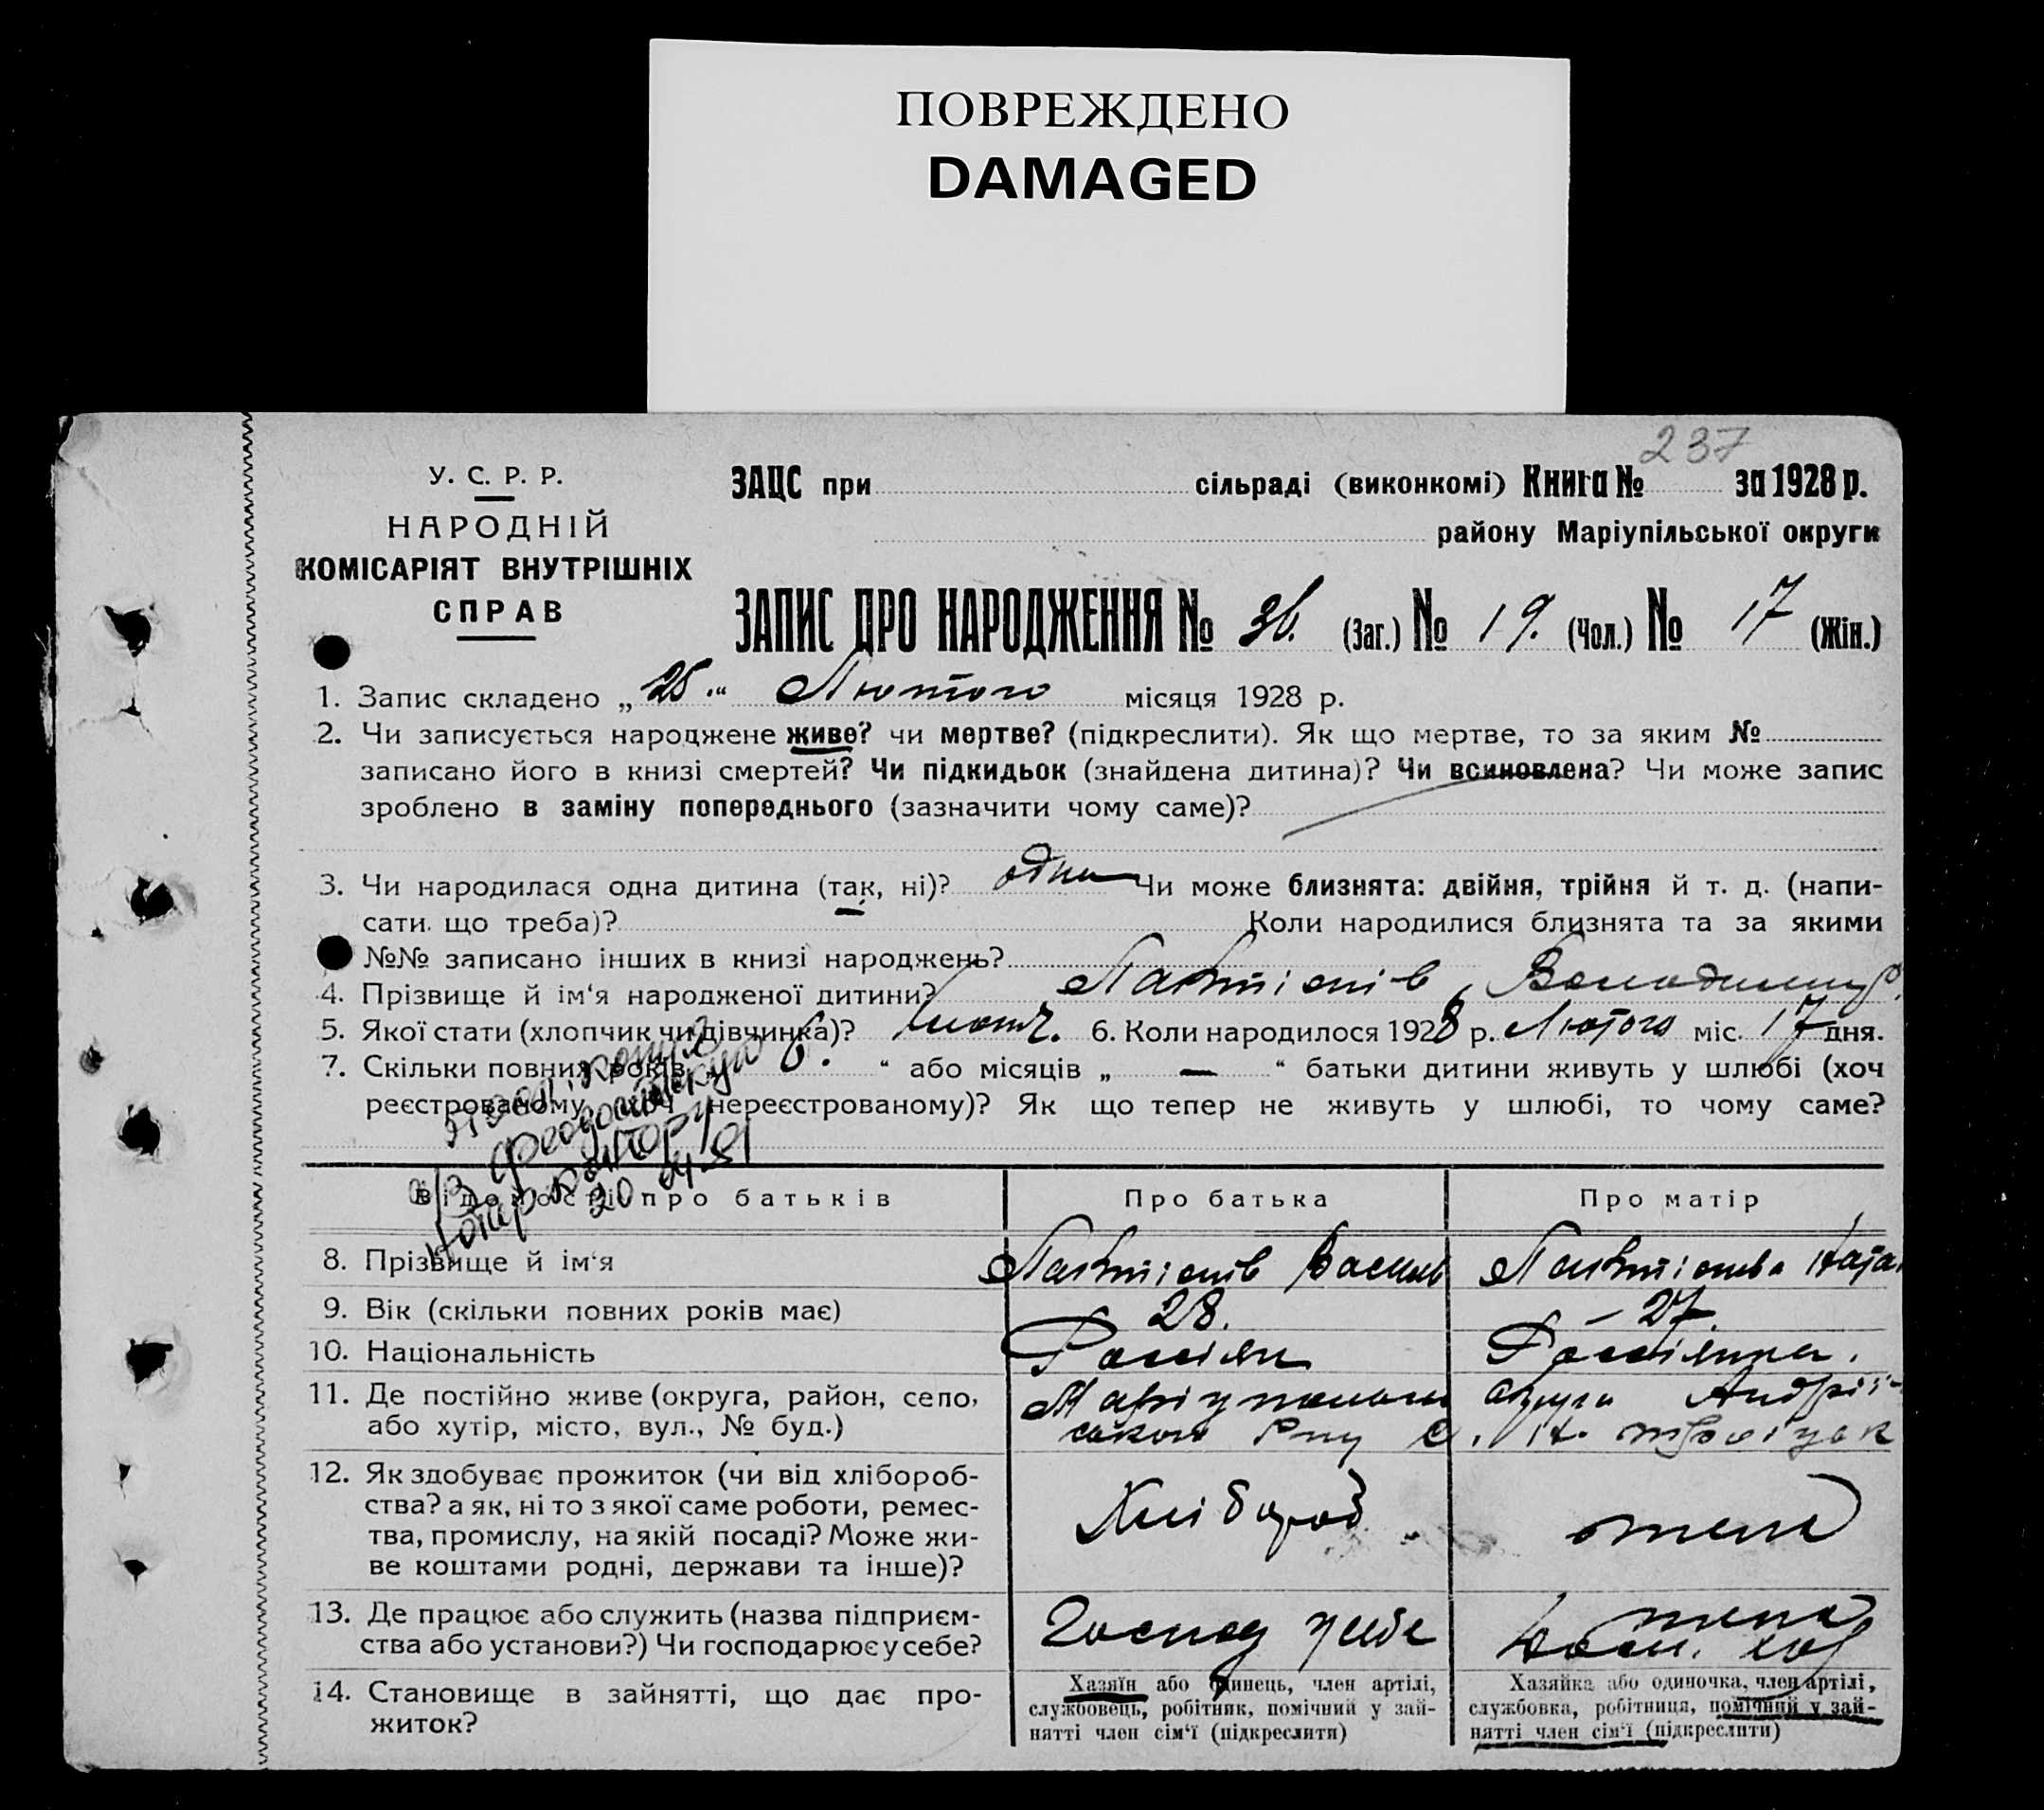 ПОВРЕЖДЕНО
DAMAGED
237
У. С. Р. Р.
НАРОДНІЙ
КОМІСАРІЯТ ВНУТРІШНІХ
СПРАВ
ЗАЦС при сільраді (виконкомі) Книга № за 1928 р.
району Маріупільської округи
ЗАПИС ПРО НАРОДЖЕННЯ № 36. (Заг.) № 19. (Чол.) № 17 (Жін.)
1. Запис складено „25." Лютого місяця 1928 р.
2. Чи записується народжене живе? чи мертве? (підкреслити). Як що мертве, то за яким №
записано його в книзі смертей? Чи підкидьок (знайдена дитина)? Чи всиновлена? Чи може запис
зроблено в заміну попереднього (зазначити чому саме)?
3. Чи народилася одна дитина (так, ні)? одна Чи може близнята: двійня, трійня й т. д. (напи-
сати що треба)? Коли народилися близнята та за якими
№№ записано інших в книзі народжень?
4. Прізвище й ім‘я народженої дитини? Володимир
5. Якої стати (хлопчик чи дівчинка)? 6. Коли народилося 1928 р. Лютого міс. 17 дня.
7. Скільки повних років „ 6. “ або місяців „ — “ батьки дитини живуть у шлюбі (хоч
реєстрованому, хоч нереєстрованому)? Як що тепер не живуть у шлюбі, то чому саме?
Відомості про батьків Про батька Про матір
8. Прізвище й ім‘я Василь
9. Вік (скільки повних років має) 28. 27.
10. Національність Росіян Росіянка.
11. Де постійно живе (округа, район, село, округи Андрії-
або хутір, місто, вул., № буд.)
12. Як здобуває прожиток (чи від хлібороб- Хлібороб
ства? а як, ні то з якої саме роботи, ремес-
тва, промислу, на якій посаді? Може жи-
ве коштами родні, держави та інше)?
13. Де працює або служить (назва підприєм- Господ у себе
ства або установи?) Чи господарює у себе?
14. Становище в зайнятті, що дає про-
житок?
Хазяїн або одинець, член артілі,
службовець, робітник, помічний у зай-
нятті член сім‘ї (підкреслити)
Хазяйка або одиночка, член артілі,
службовка, робітниця, помічний у зай-
нятті член сім‘ї (підкреслити)